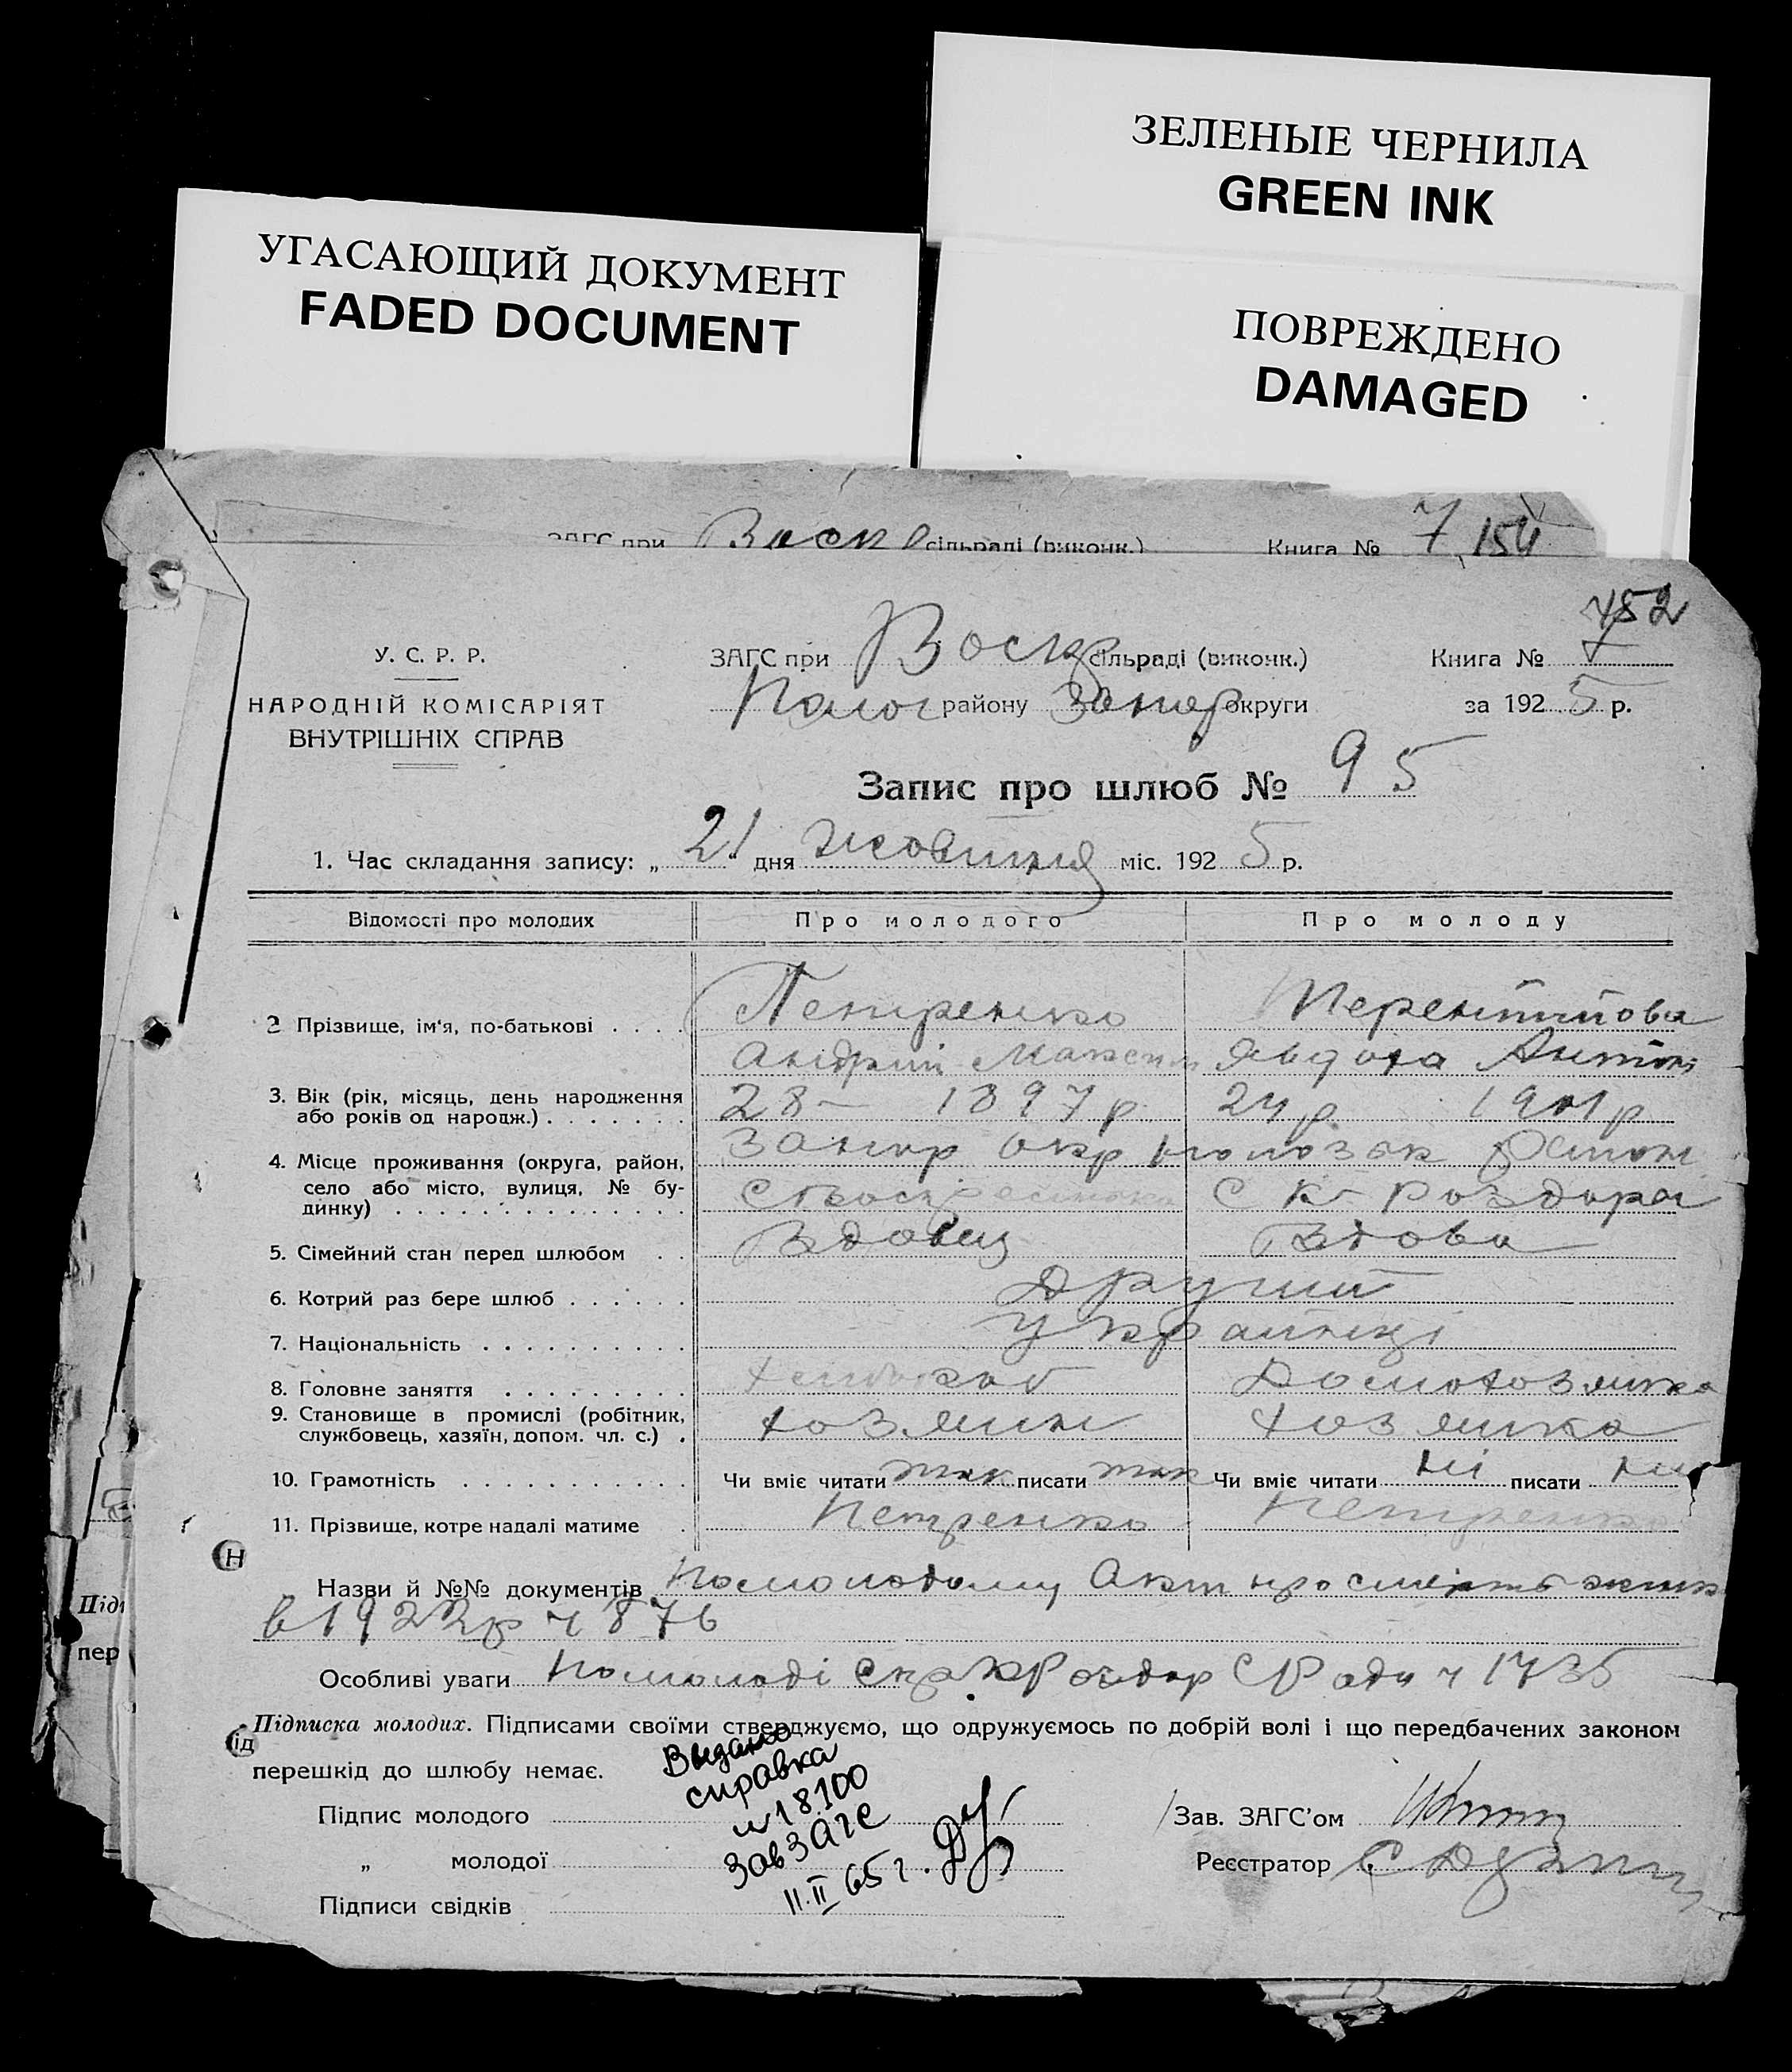 ЗЕЛЕНЫЕ ЧЕРНИЛА
GREEN INK
УГАСАЮЩИЙ ДОКУМЕНТ
FADED DOCUMENT
ПОВРЕЖДЕНО
DAMAGED
ЗАГС при Воскр сільраді (виконк.) Книга № 7 154
152
У. С. Р. Р.
ЗАГС при Воскр сільраді (виконк.) Книга № 7
НАРОДНІЙ КОМІСАРІЯТ
ВНУТРІШНІХ СПРАВ
Полог району Запор округи за 1925 р.
Запис про шлюб № 95
1. Час складання запису: „21" дня жовтня міс. 1925 р.
Відомості про молодих Про молодого Про молоду
2 Прізвище, ім'я, по-батькові . . . . Петренко Терентьтова
Андрий Максим Явдоха Антон
3. Вік (рік, місяць, день народження
або років од народж.) . . . . . . . 28– 1897 р 24 р 1901 р
4. Місце проживання (округа, район,
село або місто, вулиця, № будинку) . . . . . . . . . . . . . . Запор окр
С К- Роздори
5. Сімейний стан перед шлюбом . . Вдовец Вдова
6. Котрий раз бере шлюб . . . . . . Другий
7. Національність . . . . . . . . . . українці
8. Головне заняття . . . . . . . . . хлібороб Домохозяйка
9. Становище в промислі (робітник,
службовець, хазяїн, допом. чл. с.) . хозяин хозяйка
10. Грамотність . . . . . . . . . . . Чи вміє читати так писати так Чи вміє читати ні писати ні
11. Прізвище, котре надалі матиме . Петренко Петренко
Назви й №№ документів По молодому Акт про смерть жінки
в 1922р ч 876
Особливі уваги по молоді С Ради ч 1735
Підписка молодих. Підписами своїми стверджуємо, що одружуємось по добрій волі і що передбачених законом
перешкід до шлюбу немає.
Выдано
справка
н 18100
Зав ЗАГС
11.II 65 г.
Підпис молодого Зав. ЗАГС'ом
„ молодої Реєстратор
Підписи свідків